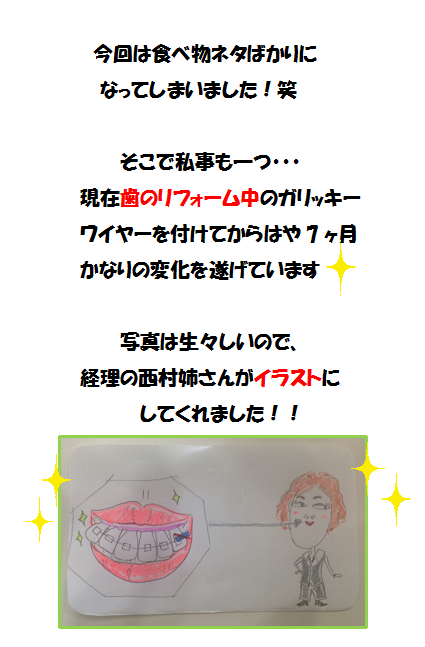 今回は食べ物ネタばかりに
なってしまいました！笑
そこで私事も一つ・・・
現在歯のリフォーム中のガリッキー
ワイヤーを付けてからはや７ヶ月
かなりの変化を遂げています
写真は生々しいので、
経理の西村姉さんがイラストに
してくれました！！